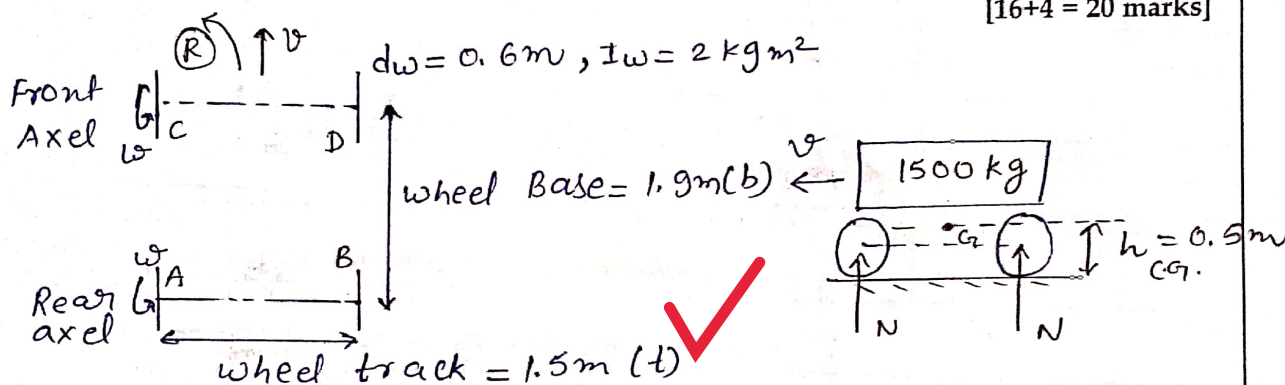 [16+4 = 20 marks]
R v
dw = 0.6m, Iw = 2 kgm²
Front
Axel
C
D
ω
wheel Base = 1.9m(b)
v
1500 kg
G
h = 0.5m
C.G.
ω
A
B
Rear
axel
N
N
wheel track = 1.5m (t)